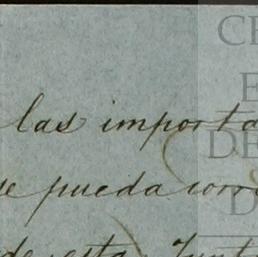 las importa
e pueda corr
de esta Junt
CE
E
DE
D